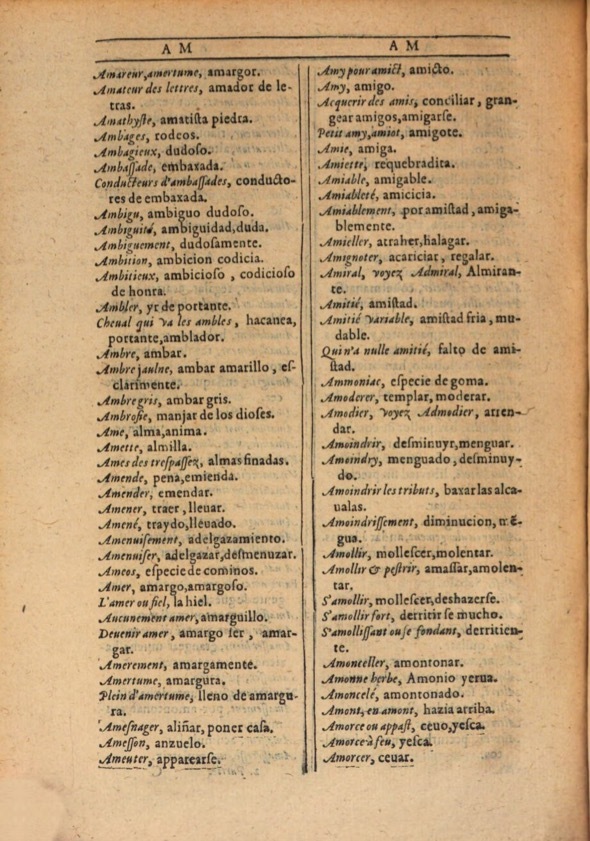 A M
Amareur,amertume, amargor.
Amateur des lettres, amador de le-
tras.
Amathyſte, amatiſta piedra.
Ambages, rodeos.
Ambagieux, dudoſo.
Ambaſſade, embaxada.
Conducteurs d'ambaſſades, conducto-
res de embaxada.
Ambigu, ambiguo dudoſo.
Ambiguité, ambiguidad,duda.
Ambiguement, dudoſamente.
Ambition, ambicion codicia.
Ambitieux, ambicioſo , codicioſo
de honra.
Ambler, yr de portante.
Cheual qui va les ambles , hacanea,
portante,amblador.
Ambre, ambar.
Ambre jaulne, ambar amarillo, eſ-
clarimente.
Ambre gris, ambar gris.
Ambroſie, manjar de los dioſes.
Ame, alma,anima.
Amette, almilla.
Ames des treſpaſſez, almas finadas.
Amende, pena,emienda.
Amender, emendar.
Amener, traer, lleuar.
Amené, traydo,lleuado.
Amenuiſement, adelgazamiento.
Amenuiſer, adelgazar,deſmenuzar.
Ameos, eſpecie de cominos.
Amer, amargo,amargoſo.
L'amer ou fiel, la hiel.
Aucunement amer,amarguillo.
Deuenir amer, amargo ſer , amar-
gar.
Amerement, amargamente.
Amertume, amargura.
Plein d'amertume, lleno de amargu-
ra.
Ameſnager, aliñar, poner caſa.
Ameſſon, anzuelo.
Ameuter, apparearſe.
A M
Amy pour amict, amicto.
Amy, amigo.
Acquerir des amis, conciliar, gran-
gear amigos,amigarſe.
Petit amy,amiot, amigote.
Amie, amiga.
Amiette, requebradita.
Amiable, amigable.
Amiableté, amicicia.
Amiablement, por amiſtad, amiga-
blemente.
Amieller, atraher,halagar.
Amignoter, acariciar, regalar.
Amiral, voyez Admiral, Almiran-
te.
Amitié, amiſtad.
Amitié variable, amiſtad fria, mu-
dable.
Qui n'a nulle amitié, falto de ami-
ſtad.
Ammoniac, eſpecie de goma.
Amoderer, templar, moderar.
Amodier, voyez Admodier, arren-
dar.
Amoindrir, deſminuyr,menguar.
Amoindry, menguado , deſminuy-
do.
Amoindrir les tributs, baxar las alca-
ualas.
Amoindriſſement, diminucion, mẽ-
gua.
Amollir, molleſcer,molentar.
Amollir & peſtrir, amaſſar,amolen-
tar.
S'amollir, molleſcer,deshazerſe.
S'amollir fort, derritir ſe mucho.
S'amolliſſant ou ſe fondant, derritien-
te.
Amonceller, amontonar.
Amonne herbe, Amonio yerua.
Amoncelé, amontonado.
Amont, en amont, hazia arriba.
Amorce ou appaſt, ceuo,yeſca.
Amorce à feu, yeſca.
Amorcer, ceuar.